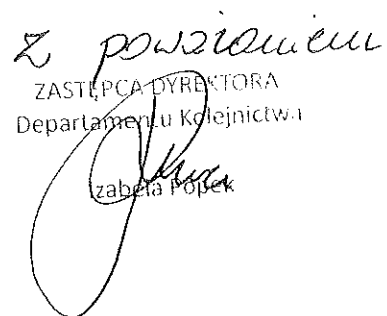 Z poważaniem
ZASTĘPCA DYREKTORA
Departamentu Kolejnictwa
Izabela Popek